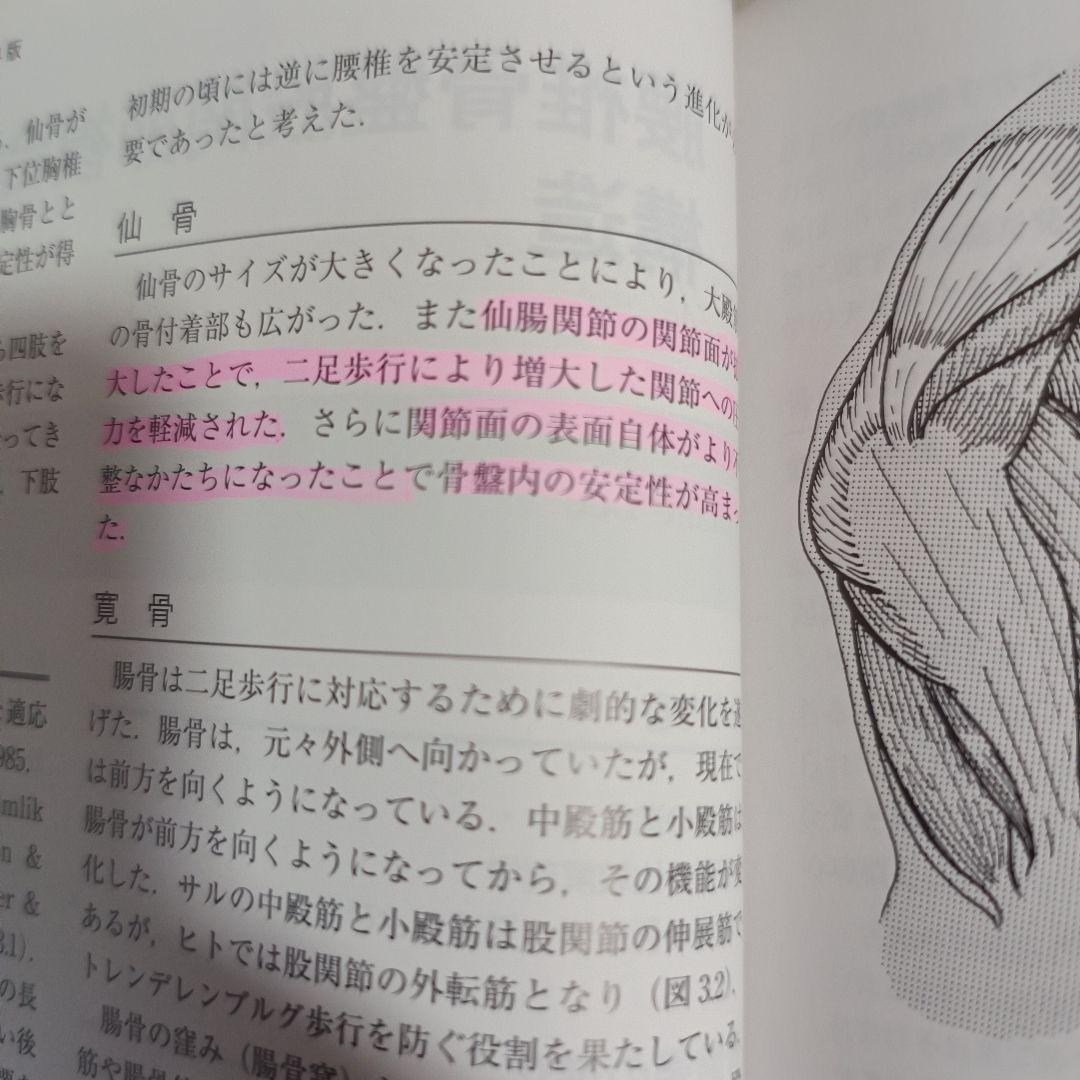 版
仙骨が
下位胸椎
胸骨とと
定性が得
四肢を
歩行にな
ってき
下肢
適応
985.
mlik
n &
er &
3.1).
の長
い後
初期の頃には逆に腰椎を安定させるという進化が
要であったと考えた.
仙 骨
仙骨のサイズが大きくなったことにより, 大殿
の骨付着部も広がった. また仙腸関節の関節面が
大したことで, 二足歩行により増大した関節への
力を軽減された. さらに関節面の表面自体がより
整なかたちになったことで骨盤内の安定性が高まっ
た.
寛 骨
腸骨は二足歩行に対応するために劇的な変化を遂
げた. 腸骨は, 元々外側へ向かっていたが, 現在で
は前方を向くようになっている. 中殿筋と小殿筋は
腸骨が前方を向くようになってから, その機能が変
化した. サルの中殿筋と小殿筋は股関節の伸展筋で
あるが, ヒトでは股関節の外転筋となり (図 3.2),
トレンデレンブルグ歩行を防ぐ役割を果たしている.
腸骨の窪み (腸骨窩)
筋や腸骨